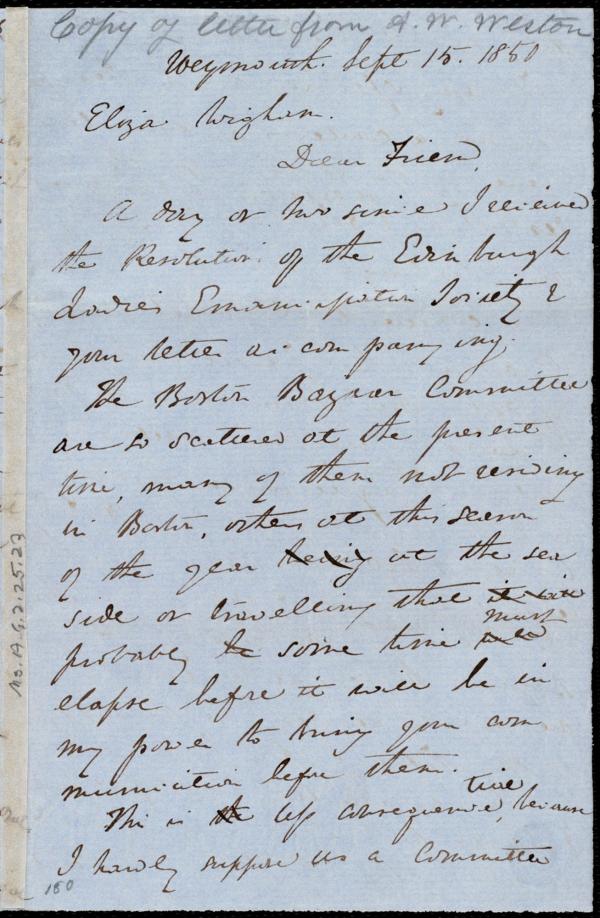 Copy of letter from A. W. Weston
Weymouth. Sept 15. 1850
Eliza Wigham.
Dear Friend,
A day or two since I received
the Resolution of the Edinburgh
Ladies Emancipation Society &
your letter accompanying.
The Boston Bazaar Committee
are so scattered at the present
time, many of them not residing
in Boston, others at this season
of the year being at the sea
side or travelling that it will
probably be some time must
elapse before it will be in
my power to bring your com
munication before them.
This is the less consequence, because
I hardly suppose us a Committee
Ms. A. 9. 2. 25. 23
180